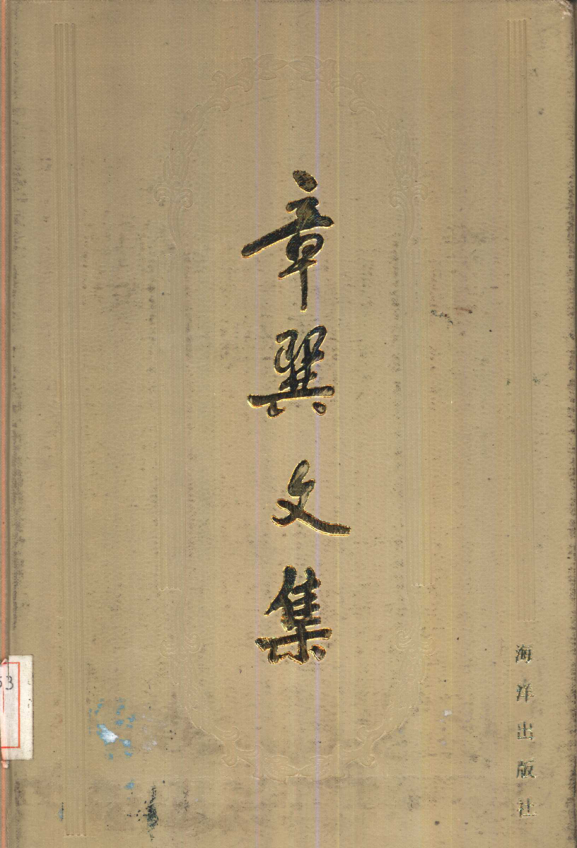 章巽文集
海洋出版社
53